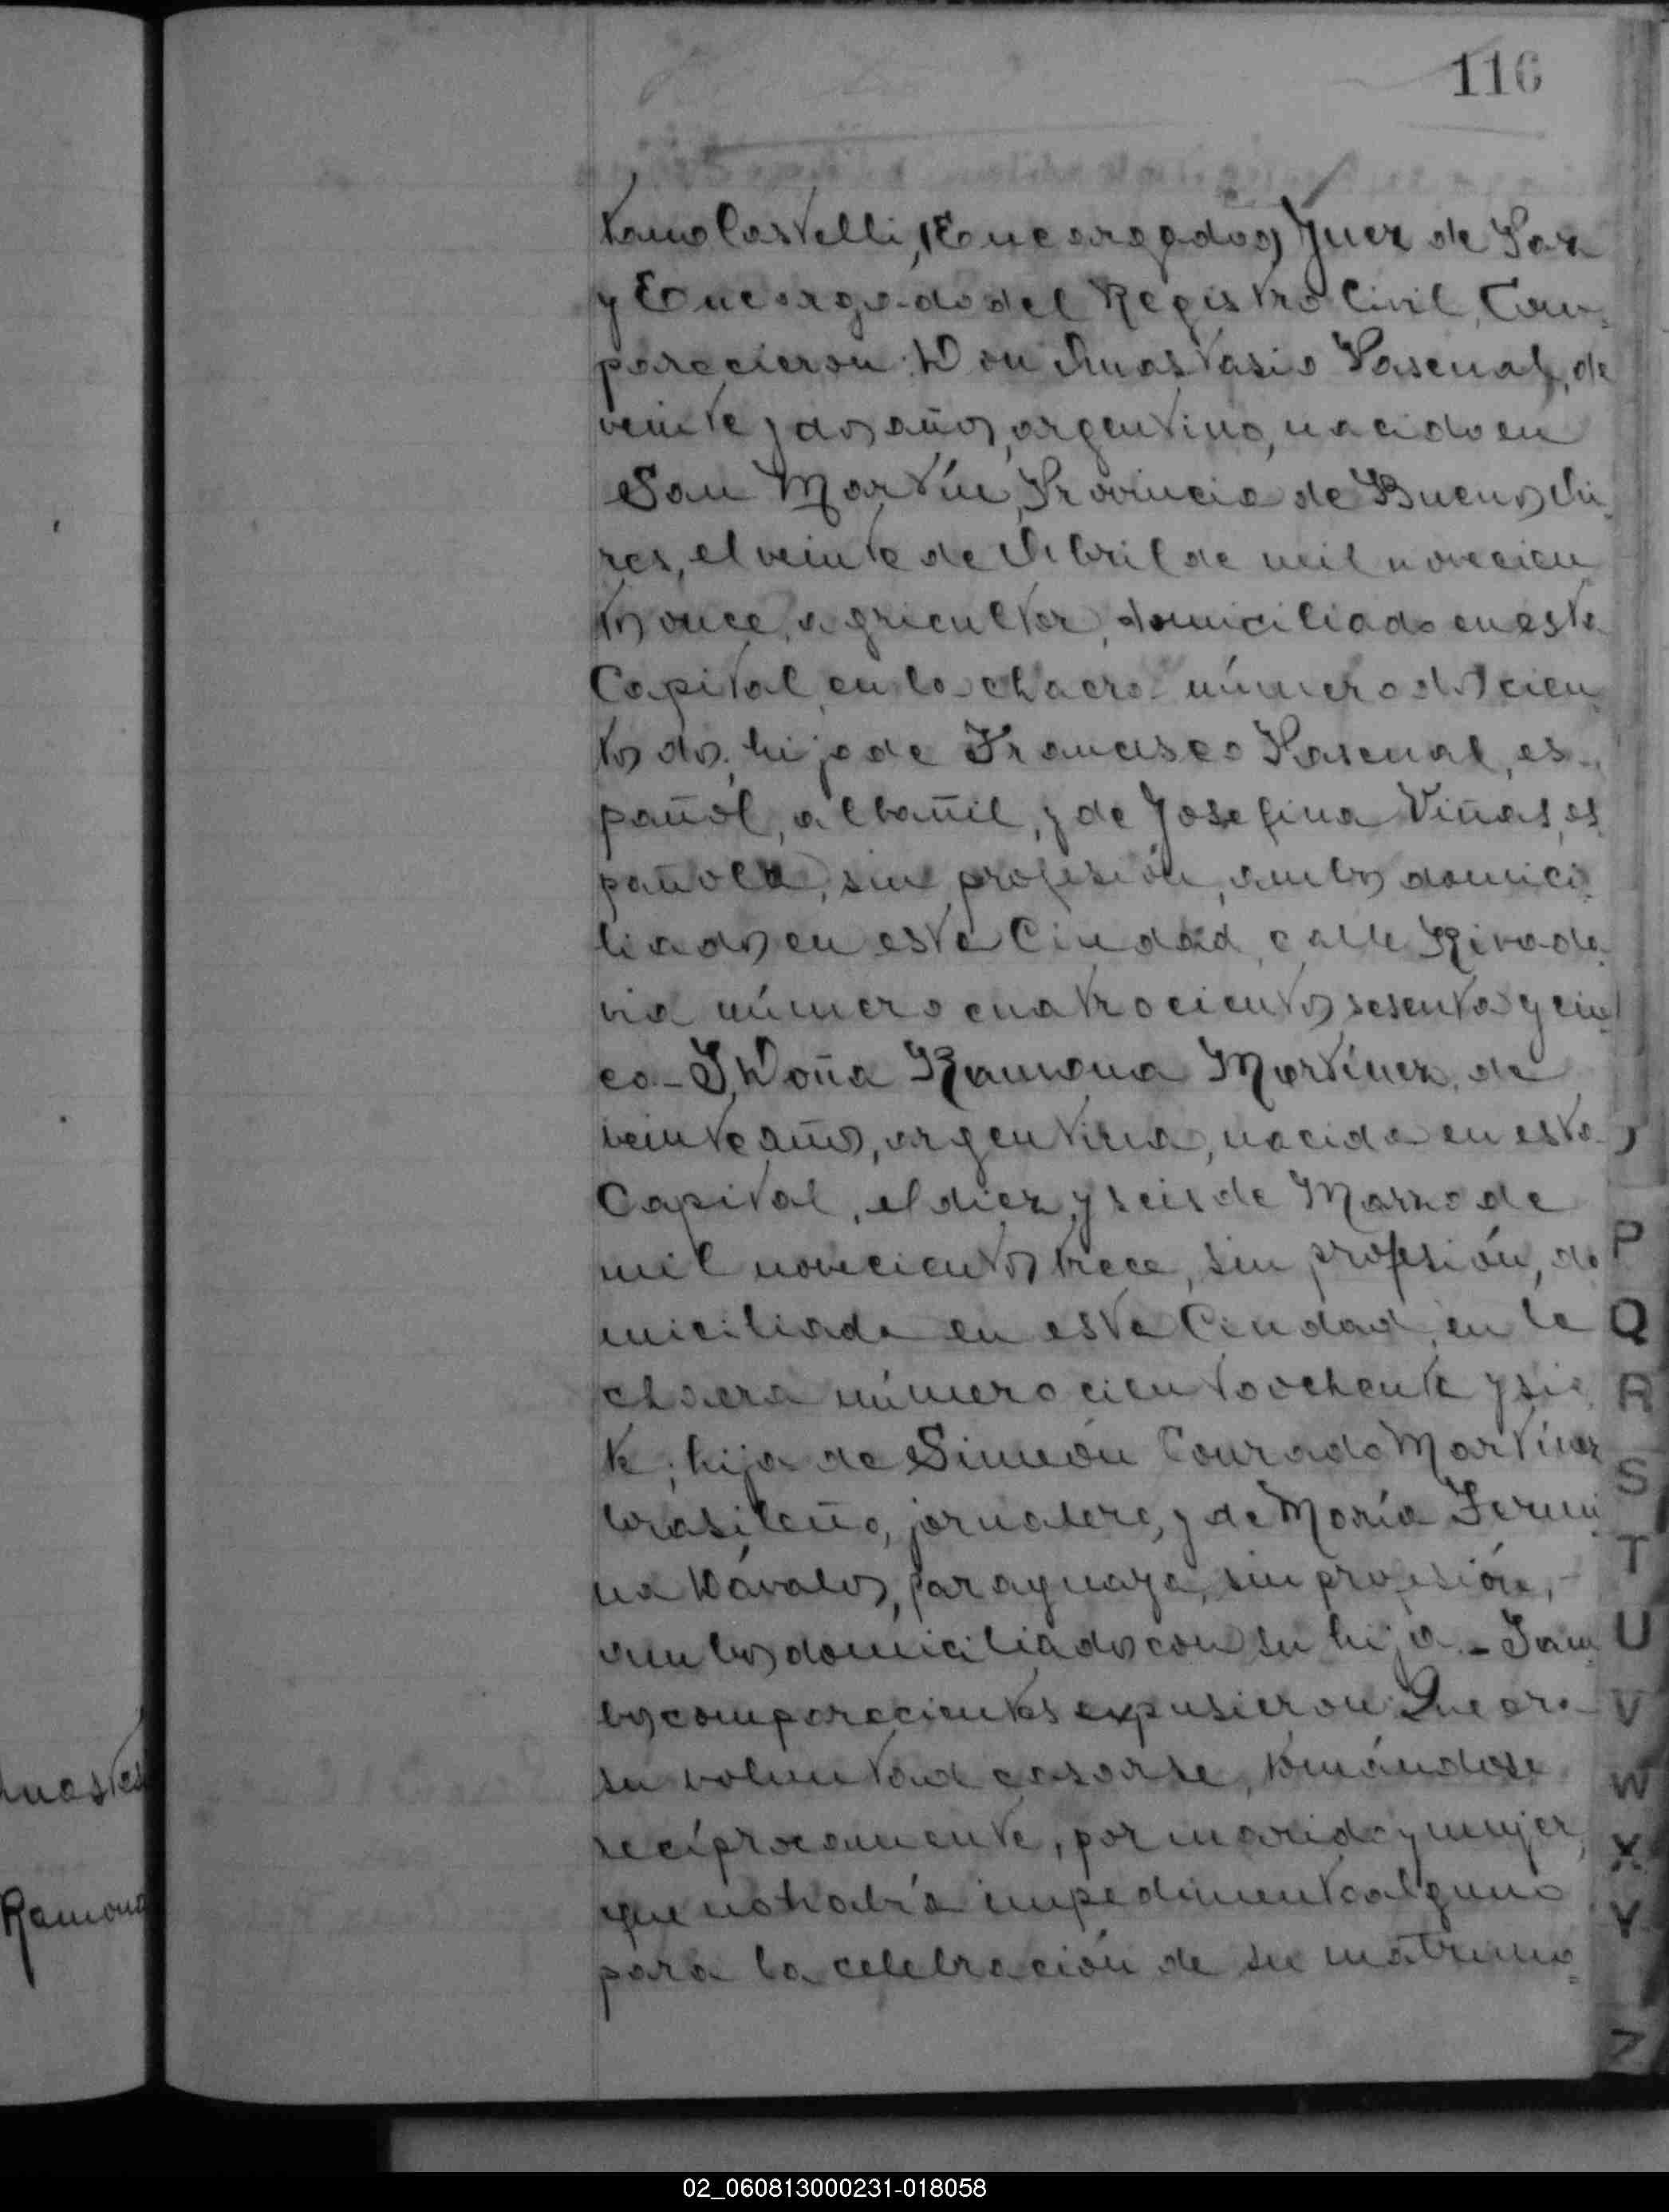 116
tamo Castelli, (Encargados) Juez de Paz
y Encargado del Registro Civil, Com-
parecieron: Don Anastasio Pascual, de
veinte y dos años, argentino, nacido en
San Martín, Provincia de Buenos Ai-
res, el veinte de Abril de mil novecien-
tos once, agricultor, domiciliado en esta
Capital, en la chacra número doscien-
tos dos; hijo de Francisco Pascual, es-
pañol, albañil, y de Josefina Viñas, es-
pañola, sin profesión, ambos domici-
liados en esta Ciudad, calle Rivada-
via número cuatrocientos sesenta y cin-
co.- Y Doña Ramona Martínez, de
veinte años, argentina, nacida en esta
Capital, el diez y seis de Marzo de
mil novecientos trece, sin profesión, do-
miciliada en esta Ciudad, en la
chacra número ciento ochenta y sie-
te; hija de Simeón Conrado Martínez
brasileño, jornalero, y de María Fermi-
na Dávalos, paraguaya, sin profesión, -
ambos domiciliados con su hija.- Y am-
bos comparecientes expusieron: Que era
su voluntad casarse, tomándose
recíprocamente, por marido y mujer,
que no había impedimento alguno
para la celebración de su matrimo-
Ramona
P
Q
R
S
T
U
V
W
X
Y
Z
02_060813000231-018058